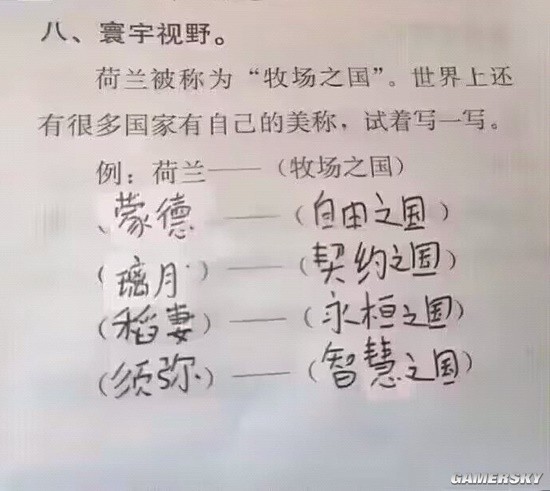 八、寰宇视野。
荷兰被称为“牧场之国”。世界上还
有很多国家有自己的美称，试着写一写。
例：荷兰——（牧场之国）
、蒙德——（自由之国）
（璃月）——（契约之国）
（稻妻）——（永桓之国）
（须弥）——（智慧之国）
GAMERSKY